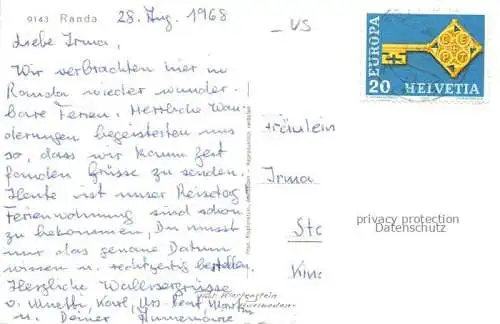 0143 Randa 28. Aug. 1968
Liebe Irma,
Wir verbrachten hier in
Randa wieder wunder-
bare Ferien. Herrliche Wan-
derungen begeisterten uns
so, dass wir kaum Zeit
fanden Grüsse zu senden.
Heute ist unser Reisetag
Ferienwohnung sind schon
zu bekommen, Du musst
nur das genaue Datum
wissen u. rechtzeitig bestellen.
Herzliche Wallisergrüsse
v. Muetti, Karl, Urs
u. Deiner
US
EUROPA
CEPT
20 HELVETIA
Fräulein
Irma
privacy protection
Datenschutz